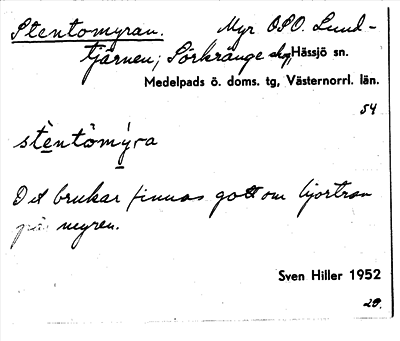 Stentomyran. Myr OSO. Lund-
tjärnen; Sörkrånge skg, Hässjö sn.
Medelpads ö. doms. tg, Västernorrl. län.
54
stèntômýra
Det brukar finnas gott om hjortron
på myren.
Sven Hiller 1952
20.